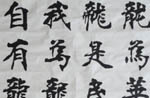 龍為華
龍是
我為龍
自有龍